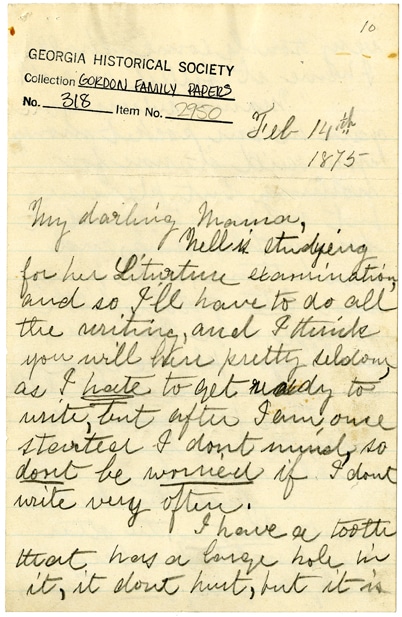 10
GEORGIA HISTORICAL SOCIETY
Collection GORDON FAMILY PAPERS
No. 318 Item No. 2950
Feb 14th
1875
My darling Mama,
Nell is studying
for her Liturture examination,
and so I'll have to do all
the writing, and I think
you will hear pretty seldom,
as I hate to get ready to
write, but after I am once
started I dont mind, so
dont be worried if I dont
write very often.
I have a tooth
that has a large hole in
it, it dont hurt, but it is